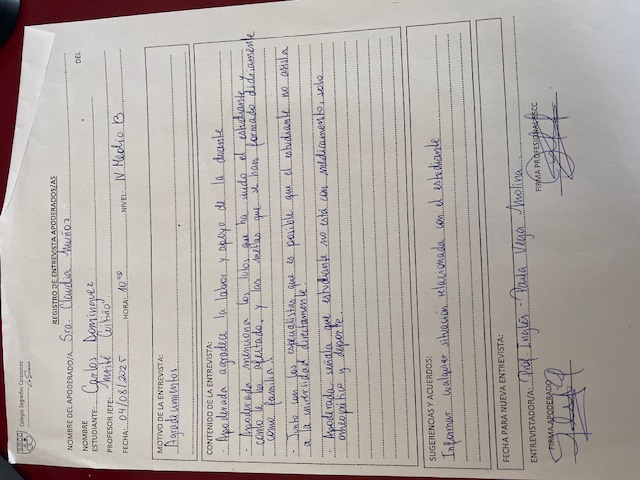 SSCC Colegio Sagrados Corazones
REGISTRO DE ENTREVISTA APODERADOS/AS
NOMBRE DEL APODERADO/A: Sra. Claudia Muñoz DEL
NOMBRE
ESTUDIANTE: Carlos Domínguez
PROFESOR JEFE: Maité
FECHA: 04/08/2025 HORA: 10:00 NIVEL: IV Medio B
MOTIVO DE LA ENTREVISTA:
Agradecimientos
CONTENIDO DE LA ENTREVISTA:
- Apoderada agradece la labor y apoyo de la docente
- Apoderada menciona los lobos que ha vivido el estudiante y
como le ha afectado y las metas que se han formado
como familia
- Junto con los especialistas, que es posible que el estudiante no asista
a la universidad directamente.
- Apoderada señala que estudiante no está con medicamento, solo
osteopático y deporte.
SUGERENCIAS Y ACUERDOS:
Informar cualquier situación relacionada con el estudiante
FECHA PARA NUEVA ENTREVISTA:
ENTREVISTADOR/A: Prof. Inglés - Paula Vega Molina
FIRMA APODERADO FIRMA PROFESIONAL SSCC